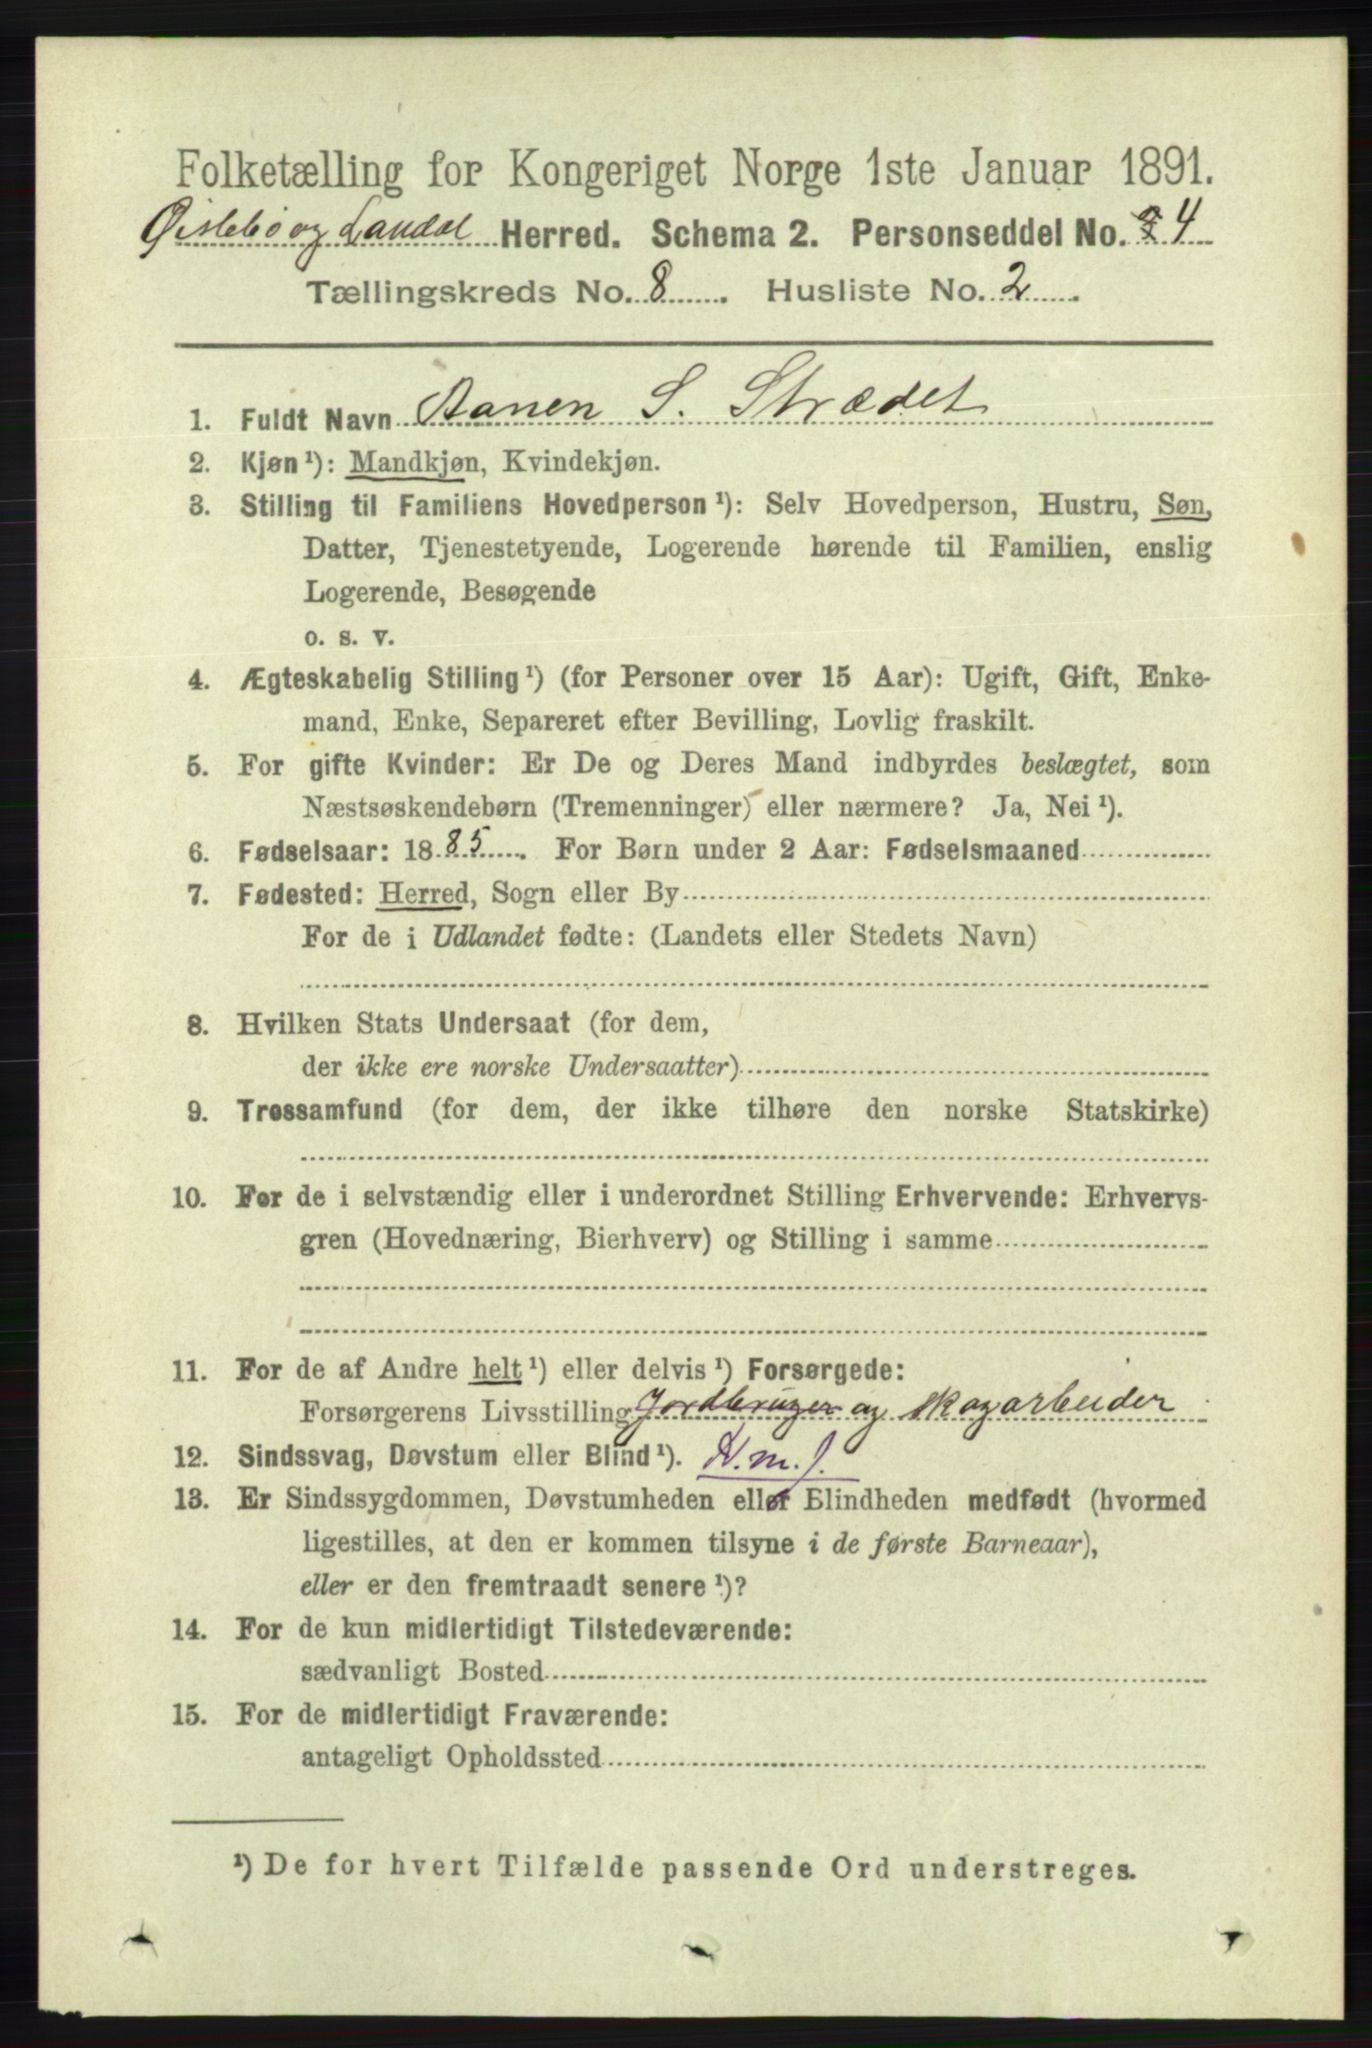 Folketælling for Kongeriget Norge 1ste Januar 1891.
Øislebø og Laudal Herred. Schema 2. Personseddel No. 4
Tællingskreds No. 8. Husliste No. 2.
1. Fuldt Navn Aanen S. Strædet
2. Kjøn ¹): Mandkjøn, Kvindekjøn.
3. Stilling til Familiens Hovedperson ¹): Selv Hovedperson, Hustru, Søn,
Datter, Tjenestetyende, Logerende hørende til Familien, enslig
Logerende, Besøgende
o. s. v.
4. Ægteskabelig Stilling ¹) (for Personer over 15 Aar): Ugift, Gift, Enke-
mand, Enke, Separeret efter Bevilling, Lovlig fraskilt.
5. For gifte Kvinder: Er De og Deres Mand indbyrdes beslægtet, som
Næstsøskendebørn (Tremenninger) eller nærmere? Ja, Nei ¹).
6. Fødselsaar: 1885. For Børn under 2 Aar: Fødselsmaaned
7. Fødested: Herred, Sogn eller By
For de i Udlandet fødte: (Landets eller Stedets Navn)
8. Hvilken Stats Undersaat (for dem,
der ikke ere norske Undersaatter)
9. Trossamfund (for dem, der ikke tilhøre den norske Statskirke)
10. For de i selvstændig eller i underordnet Stilling Erhvervende: Erhvervs-
gren (Hovednæring, Bierhverv) og Stilling i samme
11. For de af Andre helt ¹) eller delvis ¹) Forsørgede:
Forsørgerens Livsstilling Jordbruger og skogarbeider
12. Sindssvag, Døvstum eller Blind ¹). N. m. J.
13. Er Sindssygdommen, Døvstumheden eller Blindheden medfødt (hvormed
ligestilles, at den er kommen tilsyne i de første Barneaar),
eller er den fremtraadt senere ¹)?
14. For de kun midlertidigt Tilstedeværende:
sædvanligt Bosted
15. For de midlertidigt Fraværende:
antageligt Opholdssted
¹) De for hvert Tilfælde passende Ord understreges.